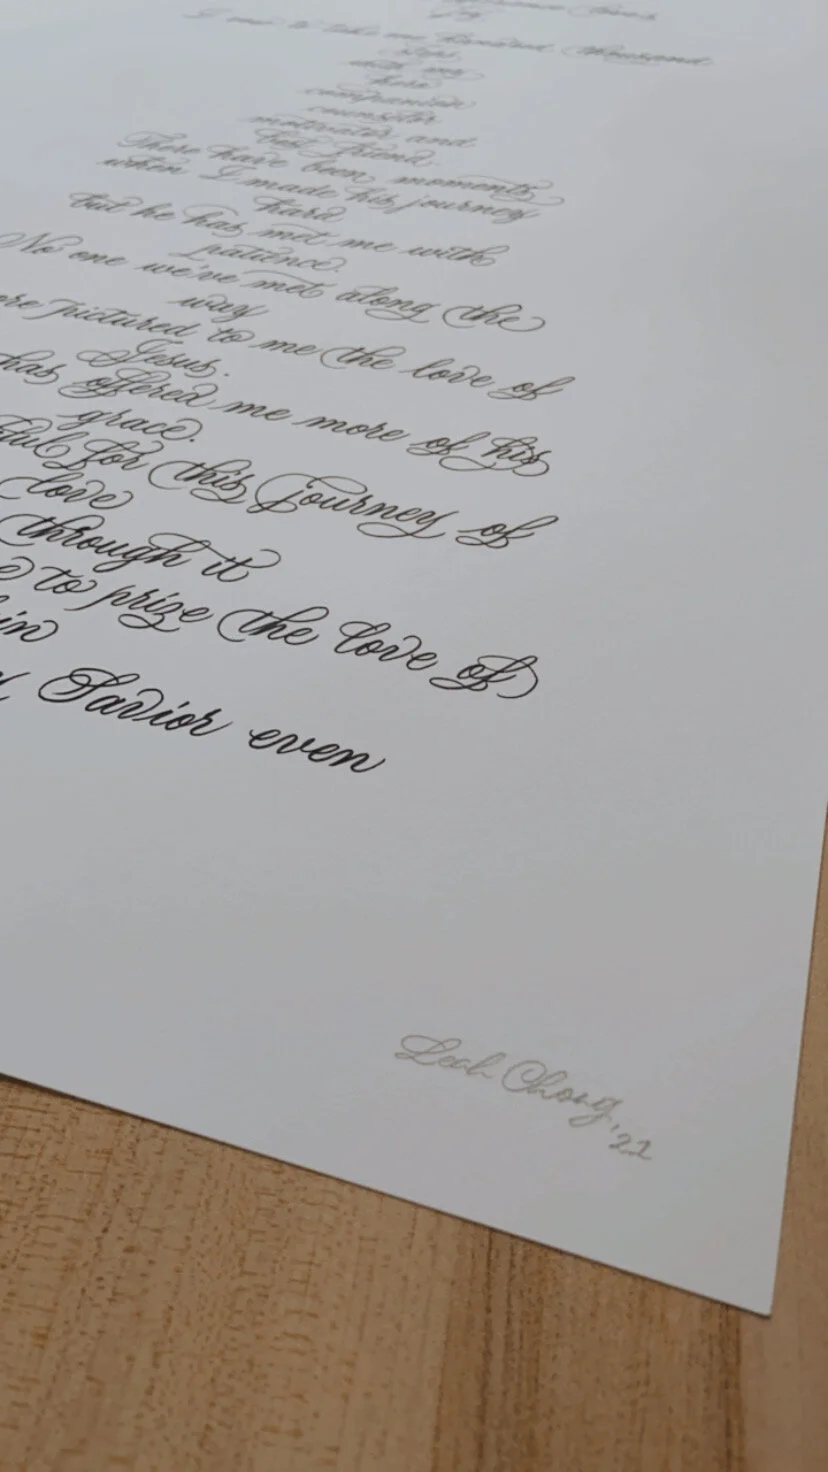 I
me
hundred thousand
steps
with my
hero
companion
counselor
motivator and
best friend.
There have been moments
when I made his journey
hard
but he has met me with
patience.
No one we've met along the
way
pictured to me the love of
Jesus.
has offered me more of his
grace.
for this journey of
love
through it
to prize the love of
Savior even
Leah Chong
'22